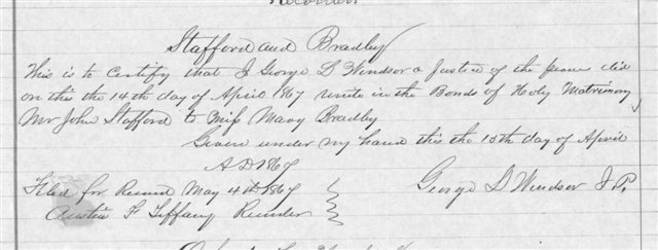 Recorder
Stafford and Bradley
This is to Certify that I George D Windsor a Justice of the peace did
on this the 14th day of April 1867 unite in the Bonds of Holy Matrimony
Mr John Stafford to Miss Mary Bradley
Given under my hand this the 15th day of April
A D 1867
George D Windsor J.P.
Filed for Record May 4th 1867
Austin F Tiffany Recorder